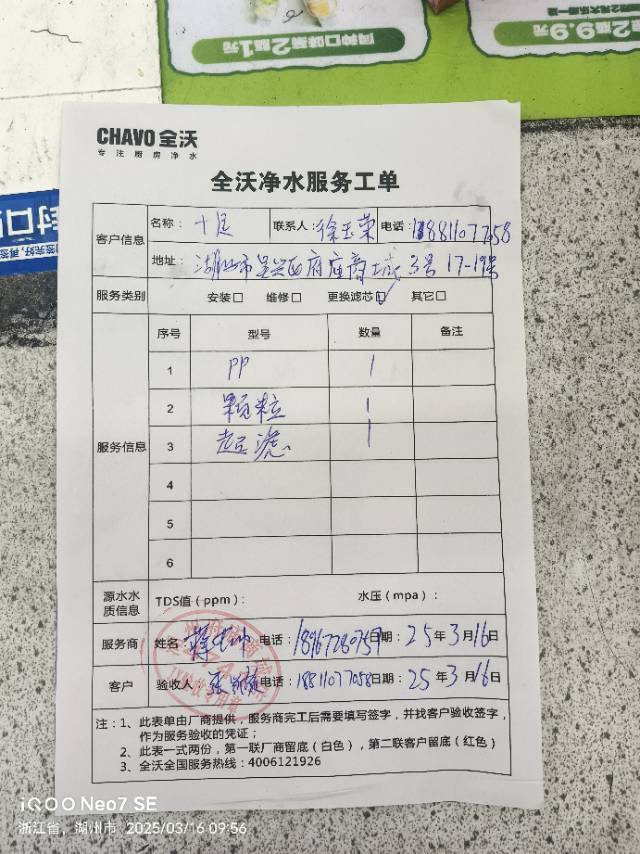 同种口味第2瓶1元
2瓶9.9元
封口
CHAVO 全沃
专注厨房净水
全沃净水服务工单
客户信息 名称：十足 联系人：徐玉荣 电话：
地址：湖州市吴兴区府庙商城3号17-19号
服务类别 安装□ 维修□ 更换滤芯☑ 其它□
服务信息 序号 型号 数量 备注
1 PP 1
2 颗粒 1
3 超滤 1
4
5
6
源水水质信息 TDS值（ppm）： 水压（mpa）：
服务商 姓名 电话：18967280757 日期：25年3月16日
客户 验收人 电话：18811077058 日期：25年3月16日
注：1、此表单由厂商提供，服务商完工后需要填写签字，并找客户验收签字，
作为服务验收的凭证；
2、此表一式两份，第一联厂商留底（白色），第二联客户留底（红色）
3、全沃全国服务热线：4006121926
iQOO Neo7 SE
浙江省，湖州市 2025/03/16 09:56